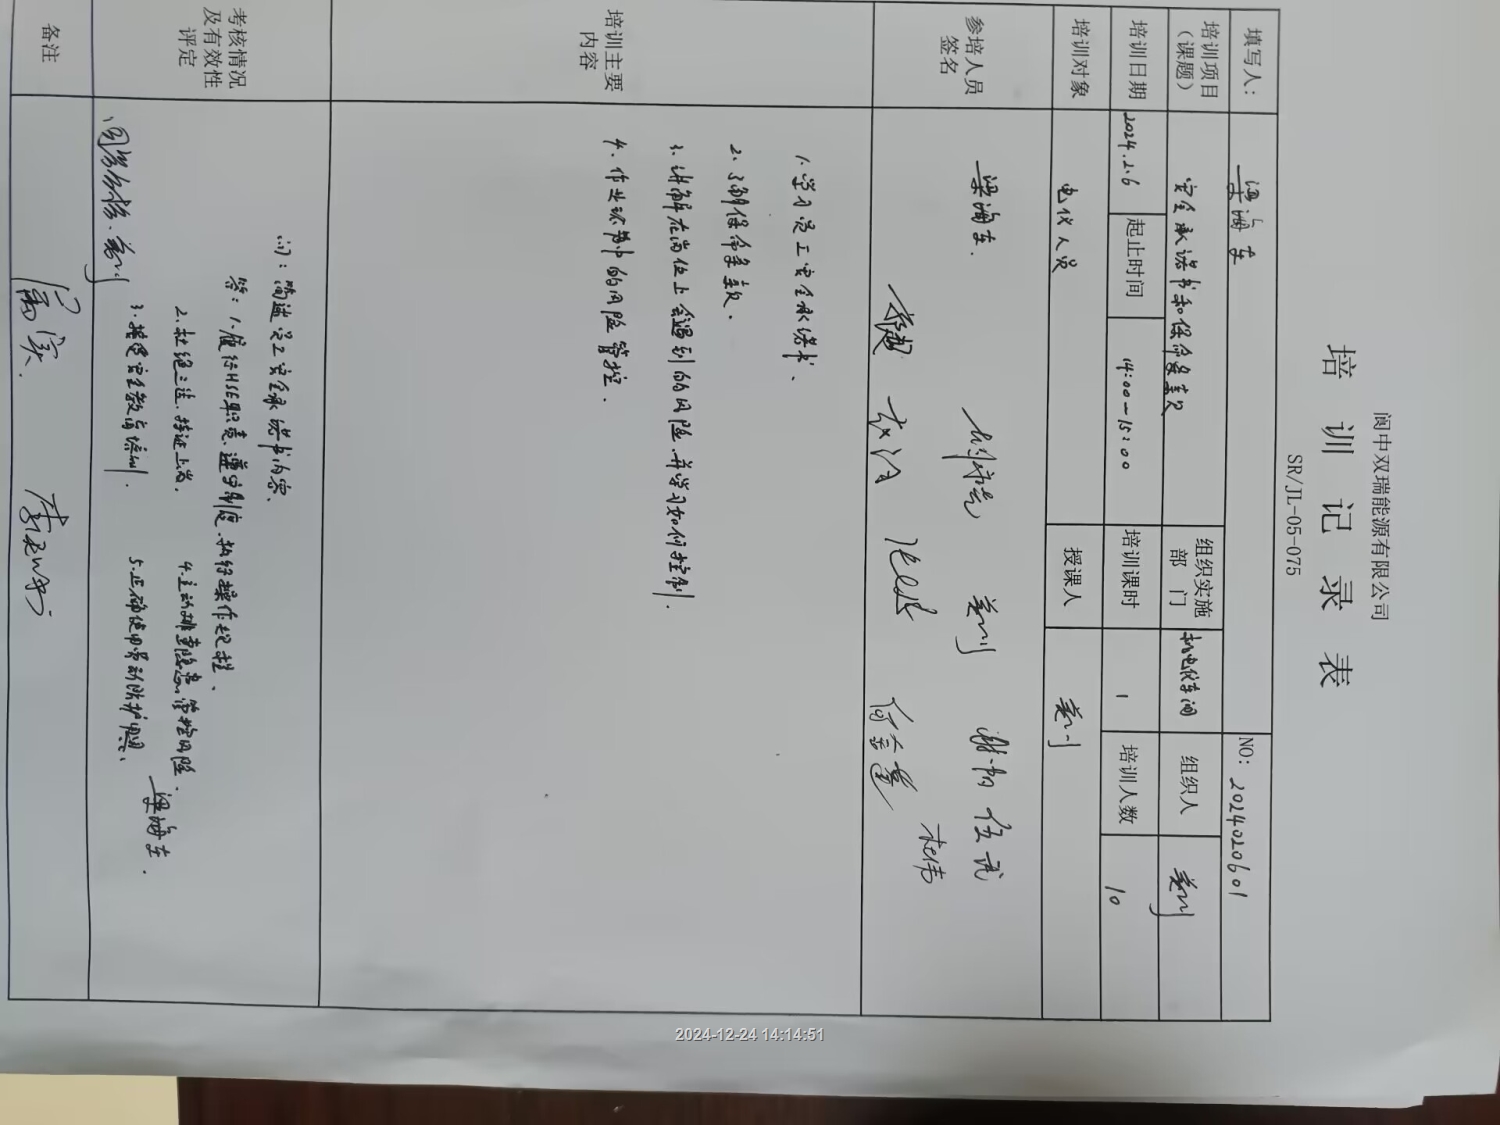 阆中双瑞能源有限公司
培训记录表
SR/JL-05-075
填写人： 梁海东 NO: 2024020601
培训项目（课题） 安全承诺书和保命条款 组织实施部门 机电仪车间 组织人 姜川
培训日期 2024.2.6 起止时间 14:00-15:00 培训课时 1 培训人数 10
培训对象 电仪人员 授课人 姜川
参培人员签名 梁海东 姜川 谢韬 伍武
杜伟
培训主要内容
1.学习员工安全承诺书、
2.了解保命条款。
3.讲解在岗位上会遇到的风险.并学习如何控制.
4.作业环节中的风险管控.
考核情况及有效性评定
问：简述员工安全承诺书内容.
答：1.履行HSE职责.遵守制度.执行操作规程.
2.杜绝三违.持证上岗. 4.主动排查隐患.管控风险.
3.接受安全教育培训. 5.正确使用劳动防护用具.
梁海东.
姜川
备注
2024-12-24 14:14:51